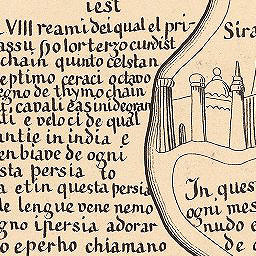 iest
VIII reami dei qual el pri-
assu so lor terzo curdist
chain quinto celstan
eptimo ceraci octavo
egno de thymochain
ti, cavali e asini de oran
ti e veloci de qual
antie in india e
en biave de ogni
sta persia to
a et in questa persia
le lengue vene nemo
gno i persia adorar
o e per ho chiamano
Sira
In ques
ogni mes
nudo e
de c